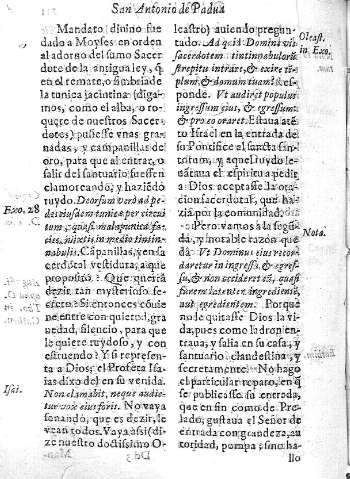 San Antonio de Padua
Mandato diuino fue
dado a Moyses en orden
al adorno del sumo Sacer
dote de la antigua ley, q̃
en el remate, o fimbria de
la tunica jacintina (diga-
mos, como el alba, o ro-
quete de nuestros Sacer
dotes) pusiesse vnas gra
nadas, y campanillas de
oro, para que al entrar, o
salir del santuario fuessen
clamoreando, y haziẽdo
ruydo. Deorsum verò ad pe-
des eiusdem tunicæ per circui
tum, quasi mala punica fa-
cies, mixtis in medio tintin-
nabulis. Capanillas, y en sa
cerdotal vestidura, a que
proposito? Que querrà
dezir tan mysterioso e-
fecto? Si entonces cõuie
ne entre con quietud, gra
uedad, silencio, para que
le quiere ruydoso, y con
estruendo? Y si represen-
ta a Dios; el Profeta Isa-
ias dixo del en su venida.
Non clamabit, neque audie-
tur vox eius foris. No vaya
sonando, que es dezir, le
vean todos. Vaya assi (di-
ze nuestro doctissimo O-
Exo. 28
Isai.
leastro) auiendo pregun-
tado. Ad quid Domini vult
sacerdotem tintinnabulorũ
strepitu intrare, & exire tẽ-
plum, & domum suam? Res-
ponde. Vt audiret populus
ingressum eius, & egressum:
& pro eo oraret. Estaua atẽ-
to Israel en la entrada de
su Pontifice al sancta sãn-
ctorum, y aquel ruydo le-
uãtaua el espiritu a pedir
a Dios aceptasse la ora-
cion sacerdotal, que ha-
zia por la comunidad.
Pero vamos a la segũ-
da, y notable razon que
dà. Vt Dominus eius recor-
daretur in ingressu, & egres-
su, & non occideret eũ, quasi
furem latenter ingredientẽ,
aut egredientem. Porque
no le quitasse Dios la vi-
da, pues como ladron en-
traua, y salia en su casa, y
santuario clandestina, y
secretamente. No hago
el particular reparo, en q̃
se publicasse su entrada,
que en fin como de Pre-
lado, gustaua el Señor de
entrada con grandeza, au
toridad, pompa; sino ha-
Oleast.
in Exo.
Nota.
Dd 3
llo